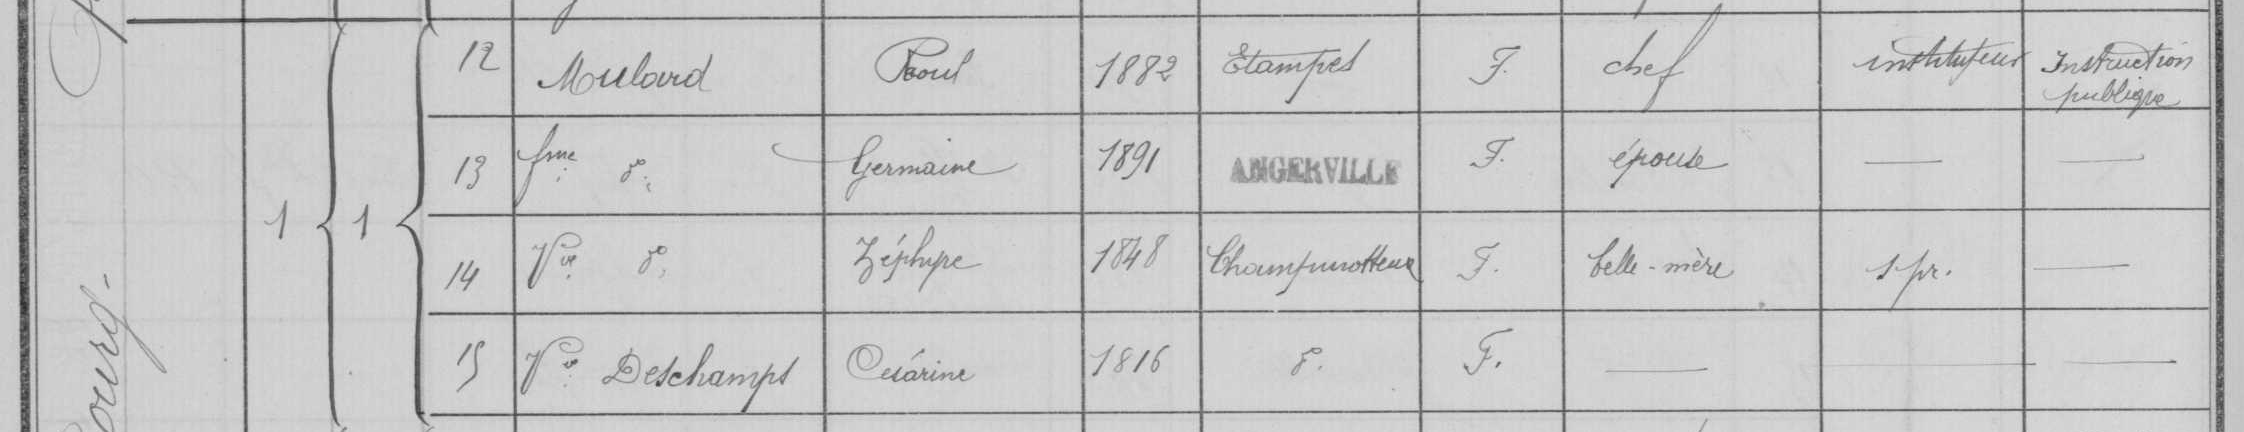 Bourg.
1 1
12 Moulard Raoul 1882 Etampes F. chef instituteur Instruction publique
13 fme d°. Germaine 1891 ANGERVILLE F. épouse — —
14 Vve d°. Zéphipe 1848 Champmotteux F. belle-mère s pr. —
15 Vve Deschamps Césárine 1816 d°. F. — — —